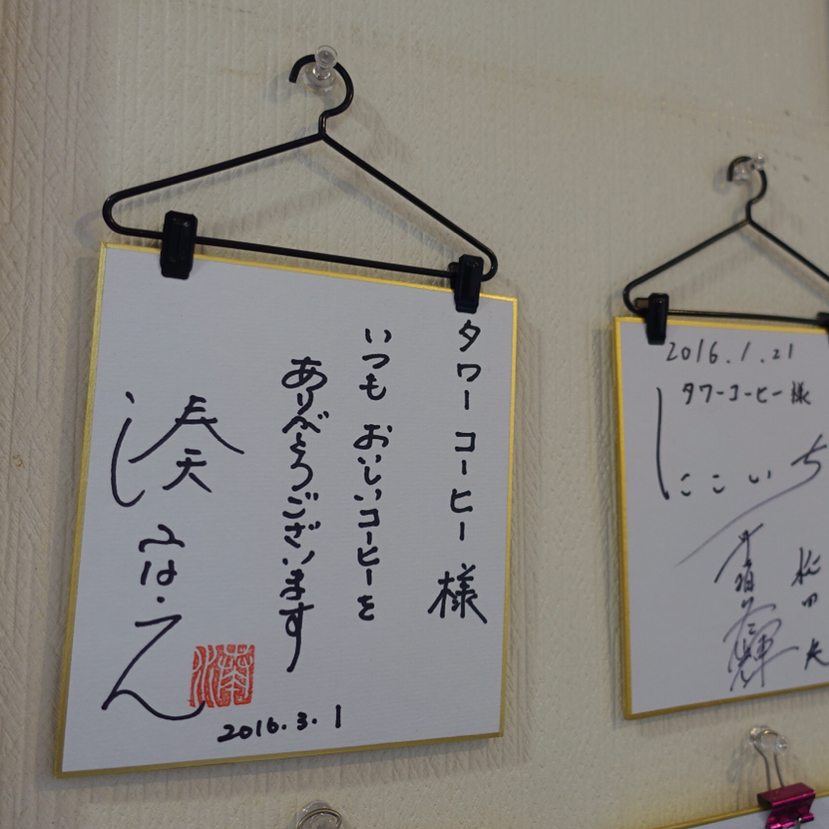 タワーコーヒー様
いつも おいしいコーヒーを
ありがとうございます
湊
2016.3.1
2016.1.21
タワーコーヒー様
にこいち